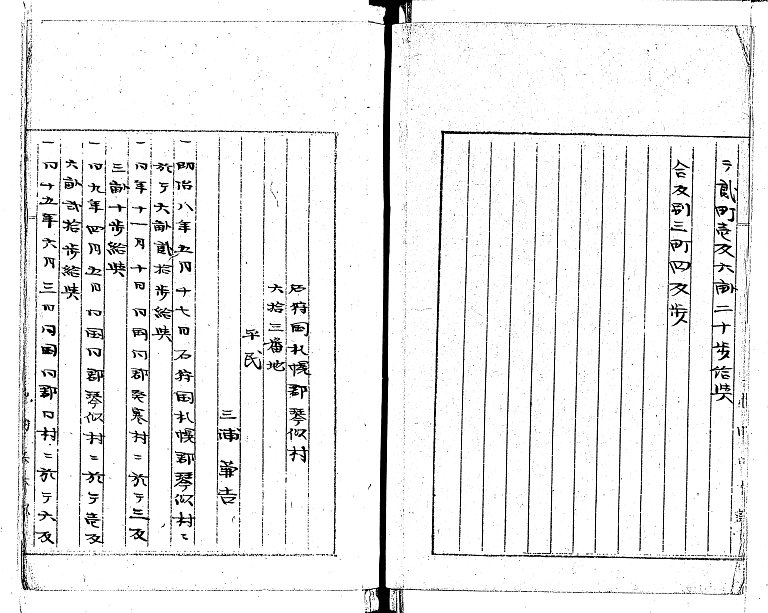 テ貳町壱反六畝二十歩給与
合反別三町四反歩
石狩国札幌郡琴似村
六拾三番地
平民
三浦
一明治八年五月十七日石狩国札幌郡琴似村ニ
於テ六畝貳拾歩給与
一同年十一月十日同国同郡発寒村ニ於テ三反
三畝十歩給与
一同九年四月五日同国同郡琴似村ニ於テ壱反
六畝弐拾歩給与
一同十五年六月三日同国同郡同村ニ於テ六反